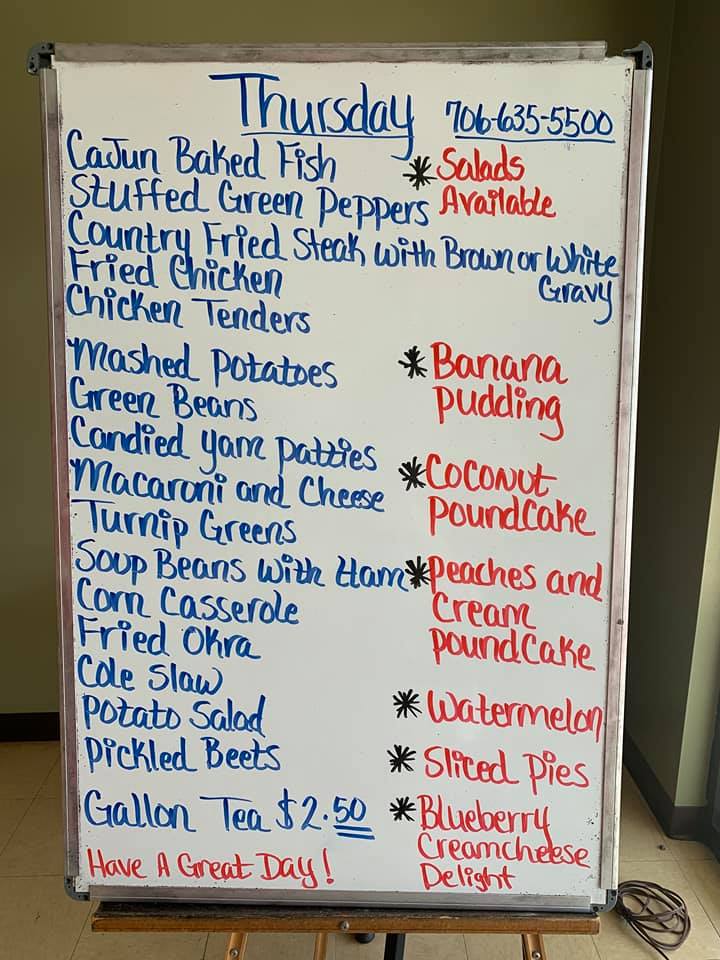 Thursday 706-635-5500
Cajun Baked Fish
Stuffed Green Peppers
Country Fried Steak with Brown or White
Gravy
Fried Chicken
Chicken Tenders
Mashed Potatoes
Green Beans
Candied Yam Patties
Macaroni and Cheese
Turnip Greens
Soup Beans With Ham
Corn Casserole
Fried Okra
Cole Slaw
Potato Salad
Pickled Beets
Gallon Tea $2.50
Have A Great Day!
*Salads
Available
*Banana
Pudding
*Coconut
PoundCake
*Peaches and
Cream
PoundCake
*Watermelon
*Sliced Pies
*Blueberry
Creamcheese
Delight